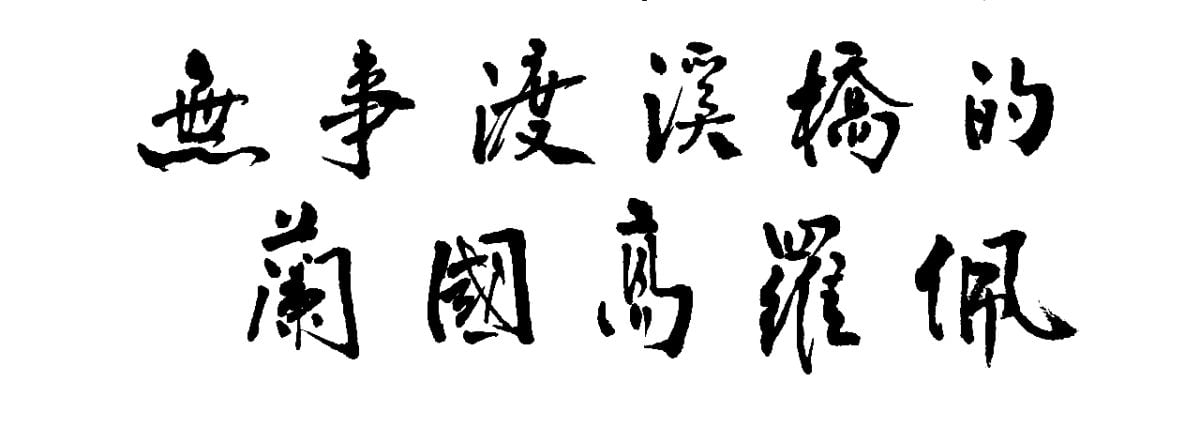 無事渡溪橋的
蘭國高羅佩